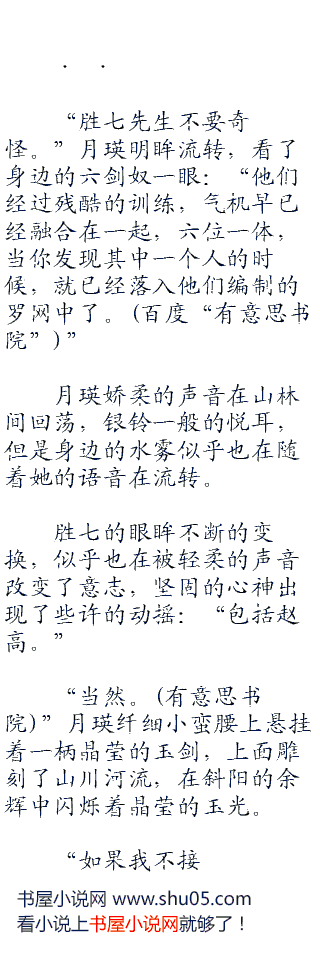 . .
“胜七先生不要奇
怪。”月瑛明眸流转，看了
身边的六剑奴一眼：“他们
经过残酷的训练，气机早已
经融合在一起，六位一体，
当你发现其中一个人的时
候，就已经落入他们编制的
罗网中了。(百度“有意思书
院”)”
月瑛娇柔的声音在山林
间回荡，银铃一般的悦耳，
但是身边的水雾似乎也在随
着她的语音在流转。
胜七的眼眸不断的变
换，似乎也在被轻柔的声音
改变了意志，坚固的心神出
现了些许的动摇：“包括赵
高。”
“当然。(有意思书
院)”月瑛纤细小蛮腰上悬挂
着一柄晶莹的玉剑，上面雕
刻了山川河流，在斜阳的余
辉中闪烁着晶莹的玉光。
“如果我不接
书屋小说网 www.shu05.com
看小说上书屋小说网就够了！